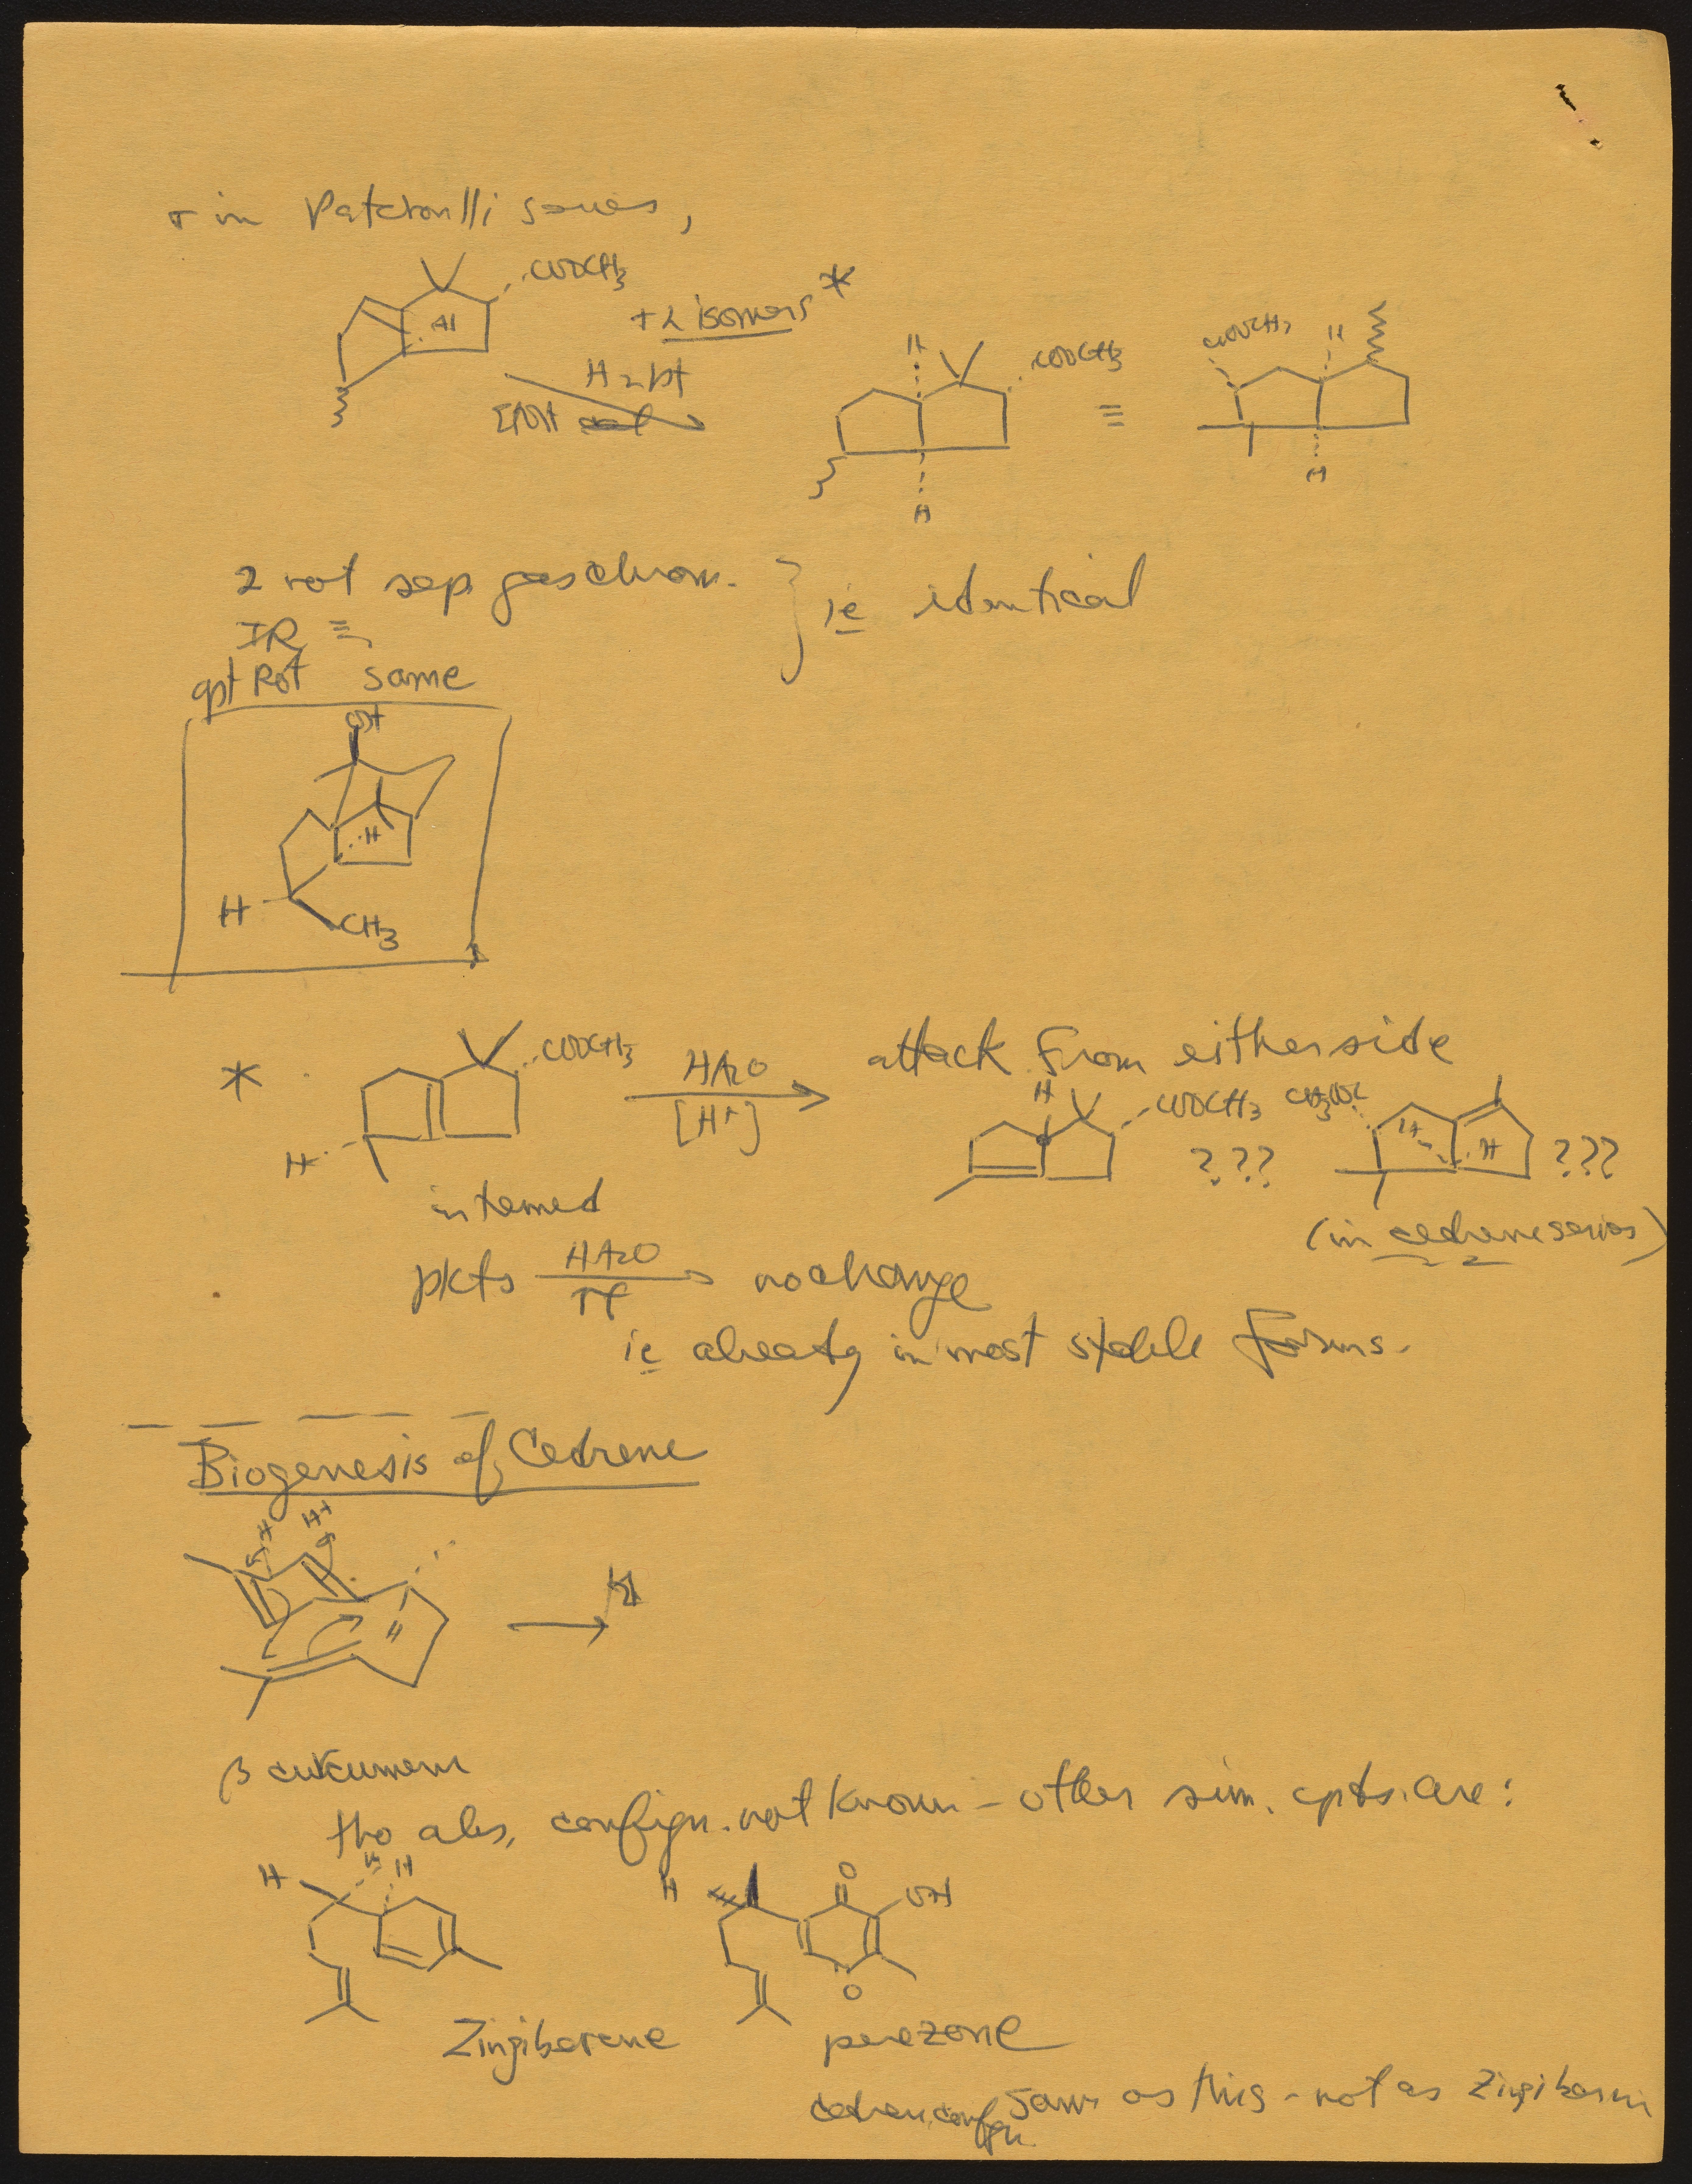 in Patchoulli series,
COOCH3
H
+2 isomers *
H2 Pt
EtOH
H
COOCH3
H
≡
COOCH3
H
H
2 not sep. gas chrom.
IR ≡
opt Rot same
} ie identical
OH
H
H
CH3
*
COOCH3
H
intermed
HAcO
[H+]
attack from either side
H
COOCH3
???
CH3OOC
H
H
???
(in cedrene series)
pkts HAcO
no change
ie already in most stable forms.
Biogenesis of Cedrene
H+
H+
β curcumene
tho abs. config. not known - other sim. cpds. are:
H
H
H
Zingiberene
H
O
OH
O
perezone
cedrene config same as this - not as Zingiberene